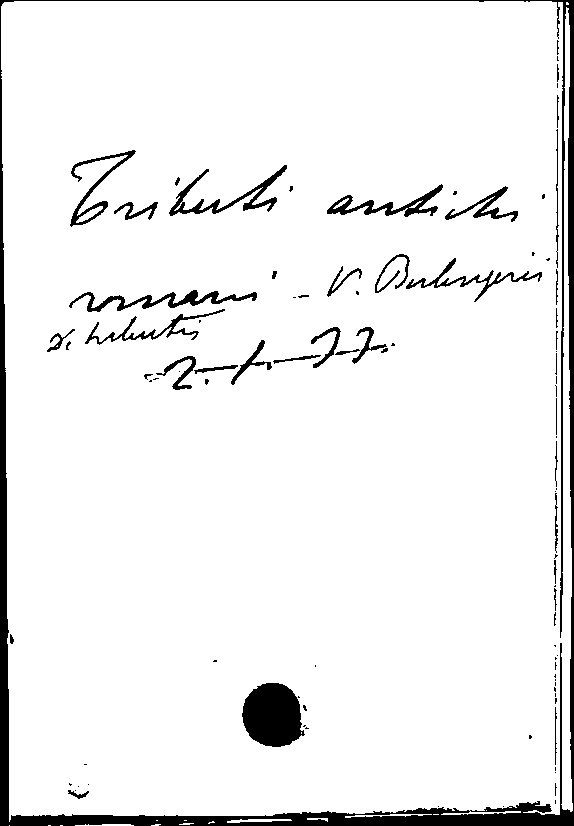 Tributi antichi
romani - V. Bulengerii
De tributis
2. 1. 77.